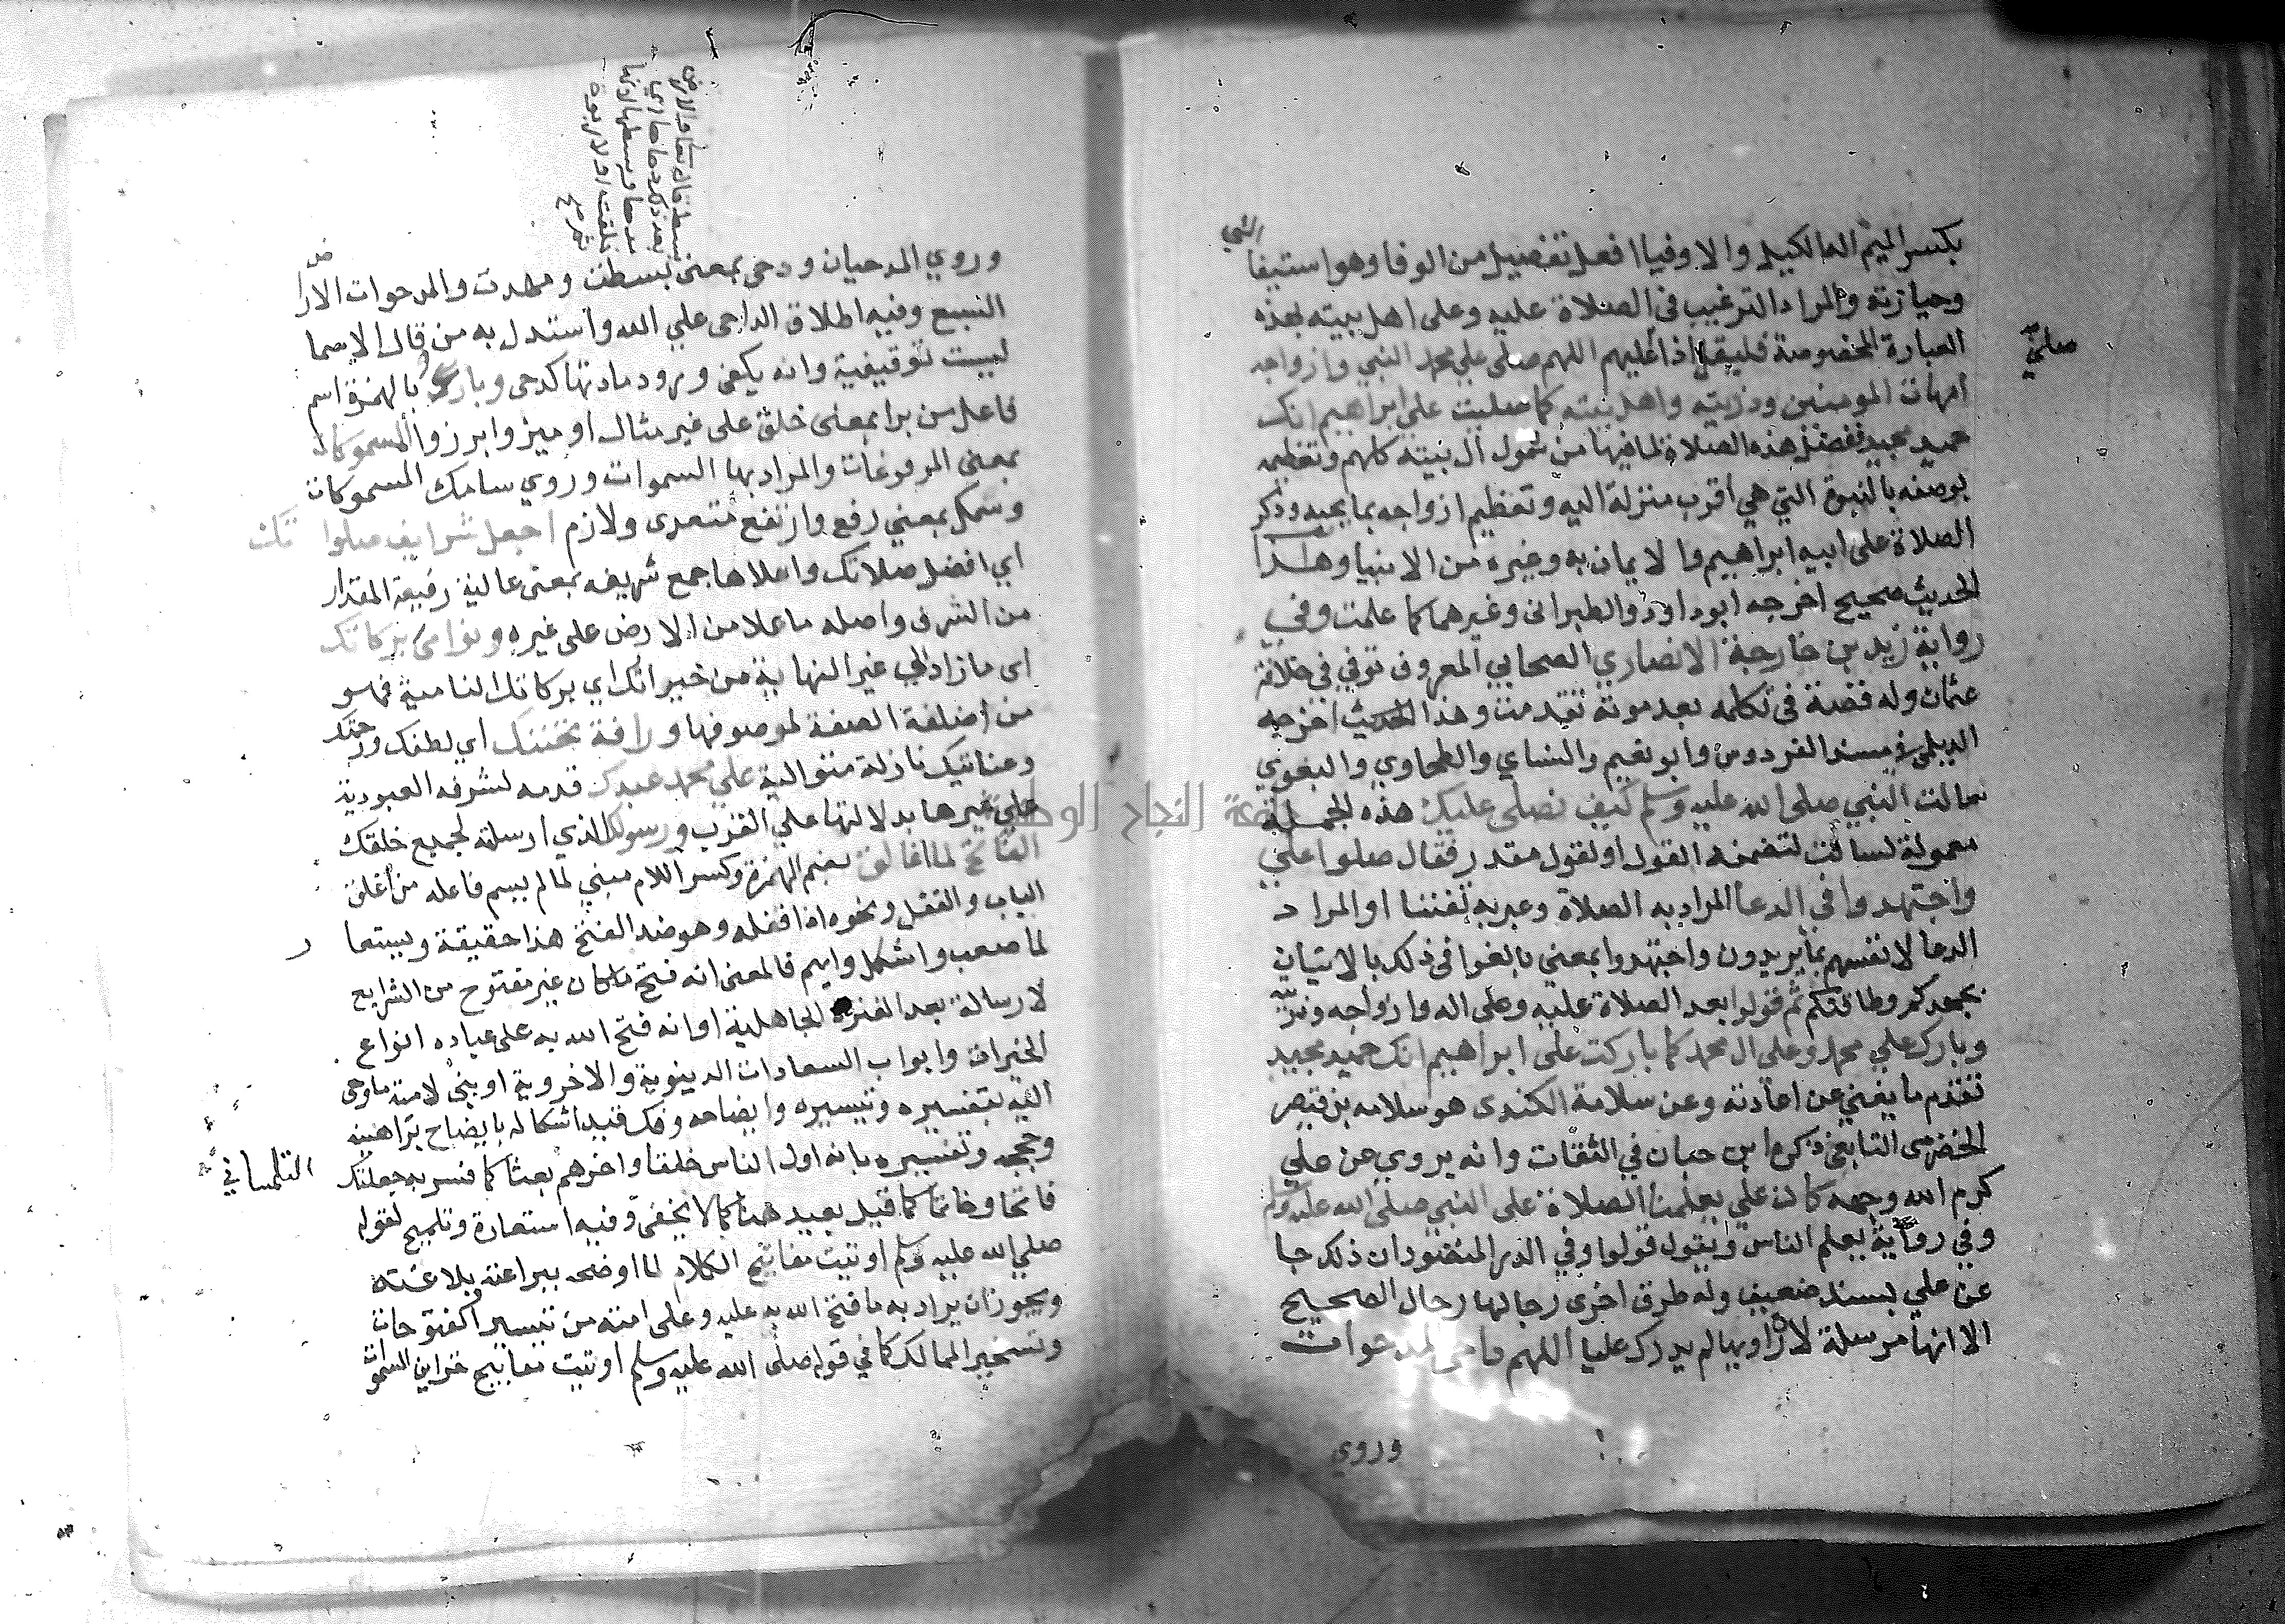 بكسر الميم اله الكيل والاوفيا افعل تفضيل من الوفا وهو استيفا الشي
وحيازته والمراد الترغيب في الصلاة عليه وعلى اهل بيته بهذه
العبارة المخصوصة فليقل اذا اللهم صلى على محمد النبي وازواجه
امهات المومنين وذريته واهل بيته كما صليت على ابراهيم انك
حميد مجيد ففضل هذه الصلاة لما فيها من شمول ال بيته كلهم وتعظيمه
بوصفه بالنبوة التي هي اقرب منزلة اليه وتعظيم ازواجه بما يجبه وذكر
الصلاة على ابيه ابراهيم والايمان به وغيره من الانبيا وهذا
الحديث صحيح اخرجه ابو داود والطبراني وغيرهما كما علمت وفي
رواية زيد بن خارجة الانصاري الصحابي المعروف توفي في خلافة
عثمان وله قصة في تكلمه بعد موته تقدمت وهذا الحديث اخرجه
الديلمي في مسند الفردوس وابو نعيم والنساي والطحاوي والبغوي
سالت النبي صلى الله عليه وسلم كيف نصلى عليك هذه الجملة
معمولة لسالت لتضمنه القول او لقول مقدر فقال صلوا علي
واجتهدوا في الدعا المراد به الصلاة وعبر به تفننا او المراد
الدعا لانفسهم بما يريدون واجتهدوا بمعنى بالغوا في ذلك بالاتيان
بجهدكم وطاقتكم ثم قولوا بعد الصلاة عليه وعلى اله وازواجه وذريته
وبارك علي محمد وعلى ال محمد كما باركت على ابراهيم انك حميد مجيد
تقدم ما يغني عن اعادته وعن سلامة الكندى هو سلامه بن قيصر
الحضرمى التابعي ذكره ابن حبان في الثقات وانه يروي عن علي
كرم الله وجهه كان علي يعلمنا الصلاة على النبي صلى الله عليه وسلم
وفي رواية يعلم الناس ويقول قولوا وفي الدر المنضود ان ذلك جا
عن علي بسند ضعيف وله طرق اخرى رجالها رجال الصحيح
الا انها مرسلة لان راويها لم يدرك عليا اللهم داحى المدحوات
وروي
وروي المدحيات ودحى بمعنى بسطت ومهدت والمدحوات الاراض
السبع وفيه اطلاق الداحى علي الله واستدل به من قال الاسما
ليست توقيفية وانه يكفى ورود مادتها كدحى وبارئ بالهمزة اسم
فاعل من برا بمعنى خلق على غير مثال او ميز وابرز والمسموكات
بمعنى المرفوعات والمراد بها السموات وروي سامك المسموكات
وسمك بمعني رفع وارتفع متعدى ولازم اجعل شرايف صلواتك
اي افضل صلاتك واعلاها جمع شريفه بمعنى عالية رفيعة المقدار
من الشرف واصله ما علا من الارض على غيره ونوامى بركاتك
اى ما زاد الي غير النهاية من خيراتك اي بركاتك النامية فهو
من اضافة الصفة لموصوفها ورافة تحننك اي لطفك ورحمتك
وعنايتك نازلة متوالية علي محمد عبدك قدمه لشرفه العبودية
على غيرها بدلالتها علي القرب ورسولك الذي ارسلته لجميع خلقك
الفاتح لما اغلق بضم الهمزة وكسر اللام مبني لما لم يسم فاعله من اغلق
الباب والقفل ونحوه اذا اقفله وهو ضد الفتح هذا حقيقة ويستعار
لما صعب واشكل وابهم فالمعنى انه فتح ما كان غير مفتوح من الشرايع
لا رسالة بعد الفترة الجاهلية او انه فتح الله به على عباده انواع
الخيرات وابواب السعادات الدينوية والاخروية او بين لامته ما اوحى
اليه بتفسيره وتيسيره وايضاحه وفك قيد اشكاله بايضاح براهينه
وحججه وتفسيره بانه اول الناس خلقا واخرهم بعثا كما فسر به جعلتك التلمساني
فاتحا وخاتما كما قيل بعيد هنا كما لا يخفى وفيه استعارة وتلميح لقوله
صلي الله عليه وسلم اوتيت مفاتيح الكلام لما اوضحه ببراعته بلاغته
ويجوز ان يراد به ما فتح الله به عليه وعلى امته من تيسير الفتوحات
وتسخير الممالك كما في قوله صلى الله عليه وسلم اوتيت مفاتيح خزاين السموات